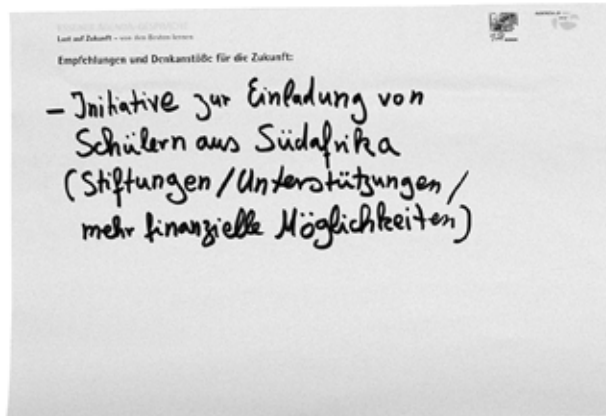 Lust auf Zukunft – von den Besten lernen
Empfehlungen und Denkanstöße für die Zukunft:
– Initiative zur Einladung von
Schülern aus Südafrika
(Stiftungen/Unterstützungen/
mehr finanzielle Möglichkeiten)